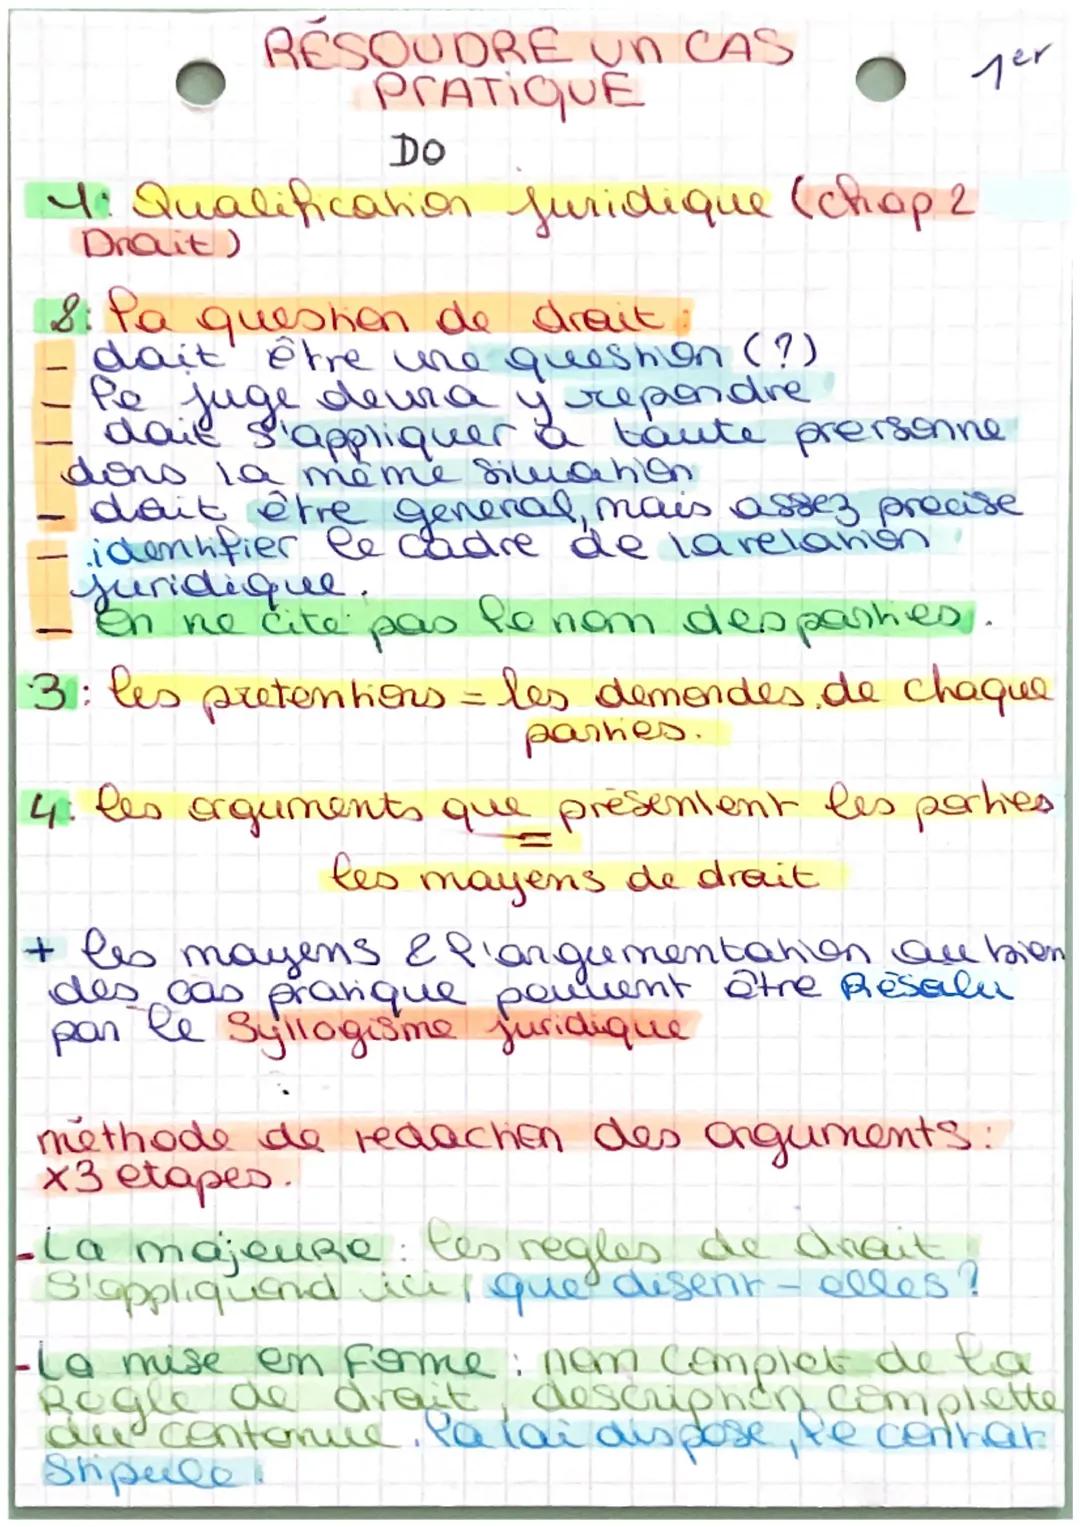 RÉSOUDRE un CAS
PratiquE
1er
DO
1: Qualification juridique (chap 2
Droit)
2: la question de droit :
- doit être une question (?)
- le juge devra y repondre
- doit s'appliquer à toute prersonne
dans la même situation
- doit être general, mais assez precise
- identifier le cadre de la relation
juridique.
- On ne cite pas le nom des parties.
3: les pretentions = les demandes de chaque
parties.
4: les arguments que présentent les parties
=
les moyens de droit
+ les moyens & l'argumentation au bien
des cas pratique peuvent être Résolu
par le Syllogisme juridique
méthode de redaction des arguments :
x3 etapes.
- La majeure : les regles de droit
s'appliquand ici, que disent-elles ?
- La mise en forme : nom complet de la
Règle de droit, description complette
du contenue. la loi dispose, le contrat
stipule.